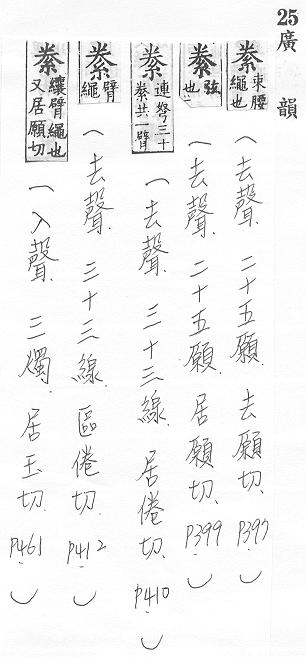 25廣韻
絭 束腰繩也 (去聲. 二十五願. 去願切. P397)
絭 弦也 (去聲. 二十五願. 居願切. P399)
絭 連弩三十絭共一臂 (去聲. 三十三線. 居倦切. P410)
絭 臂繩 (去聲. 三十三線. 區倦切. P412)
絭 纕臂繩也又居願切 (入聲. 三燭. 居玉切. P461)